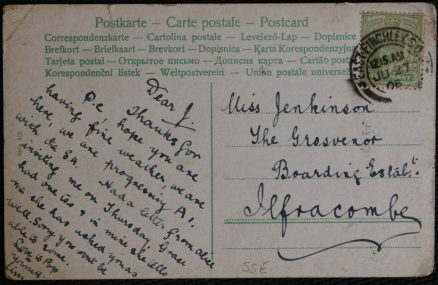 Postkarte - Carte postale - Postcard
Correspondenzkarte - Cartolina postale - Levelező-Lap - Dopisnice
Brefkort - Briefkaart - Brevkort - Dopisnica - Karta Korespondenzyjna
Tarjeta postal - Открытое письмо - Дописна карта - Cartão postal
Korespondenční lístek - Weltpostverein - Union postale universelle
EAST FINCHLEY
12.15 AM
JU
06
Dear J.
Thanks for
P.c, hope you are
having fine weather, we are
here, we are progressing A1,
with the
Had a letter from Alice
inviting me on Thursday, Grace
had one too & in mine she tells
me she has asked you as
well. Sorry you wont be
able to come.
Love to Pop
Yours
Miss Jenkinson
The Grosvenor
Boarding Establt
Ilfracombe
SSE